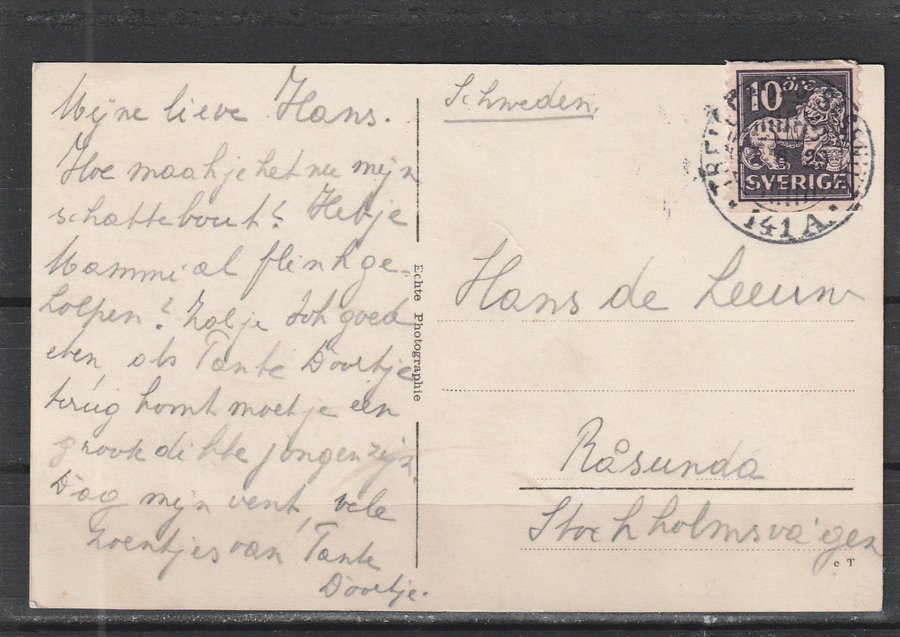 Mijne lieve Hans.
Hoe maak je het nu mijn
schattebout? Heb je
Mammi al flink ge-
holpen? Zal je ook goed
eten, als Tante Doortje
terug komt moet je een
groote dikke jongen zijn.
Dag mijn vent, vele
zoentjes van Tante
Doortje.
Echte Photographie
Schweden.
10 öre
SVERIGE
141 A.
Hans de Leeuw
Råsunda
Stockholmsvägen
c T